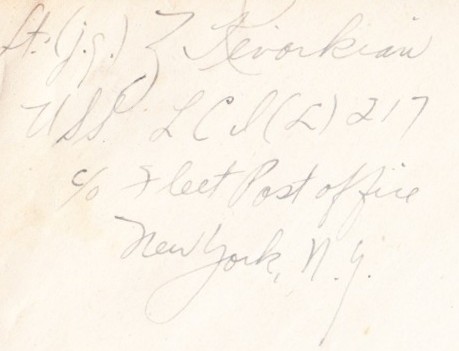 Lt. (j.g.) Z Kevorkian
U.S.S. L C I (L) 217
c/o Fleet Post office
New York, N.Y.